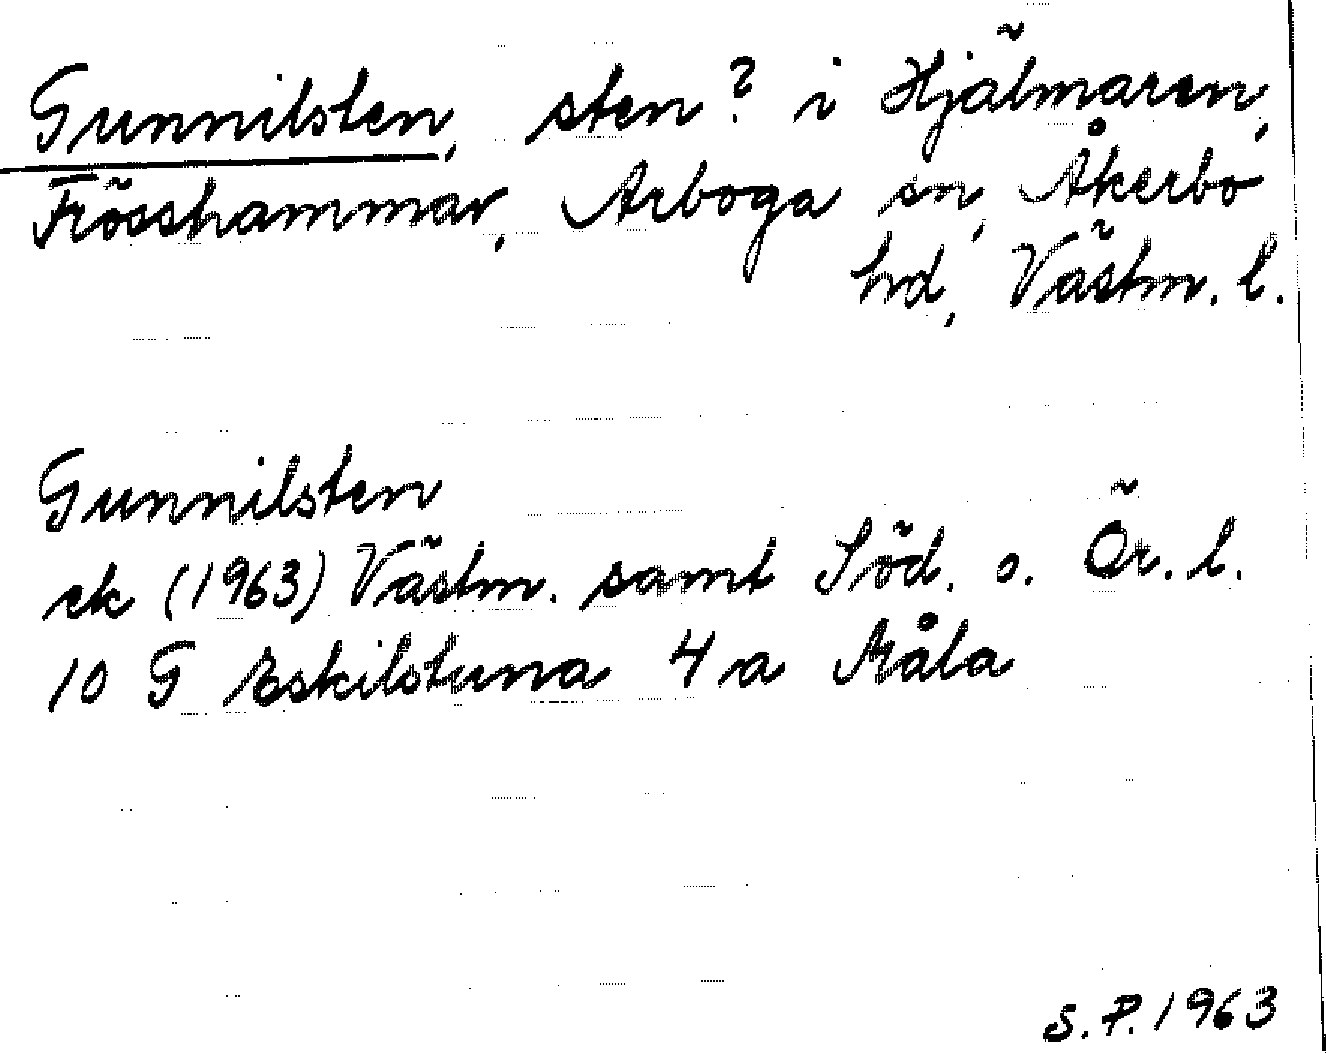 Gunnilsten, sten? i Hjälmaren,
Frösshammar, Arboga sn, Åkerbo
hd, Västm. l.
Gunnilsten
ek (1963) Västm. samt Söd. o. Ör. l.
10 G Eskilstuna 4 a Råla
S.P. 1963